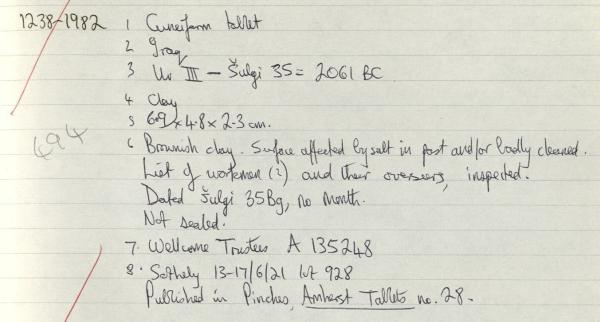 1238-1982 1 Cuneiform tablet
2 Iraq
3 Ur III – Šulgi 35 = 2061 BC
4 Clay
5 6·9 x 4·8 x 2·3 cm.
6 Brownish clay. Surface affected by salt in past and/or badly cleaned.
List of workmen (?) and their overseers, inspected.
Dated Šulgi 35 Bg, no month.
Not sealed.
494
7. Wellcome Trustees A 135248
8. Sotheby 13-17/6/21 lot 928
Published in Pinches, Amherst Tablets no. 28.